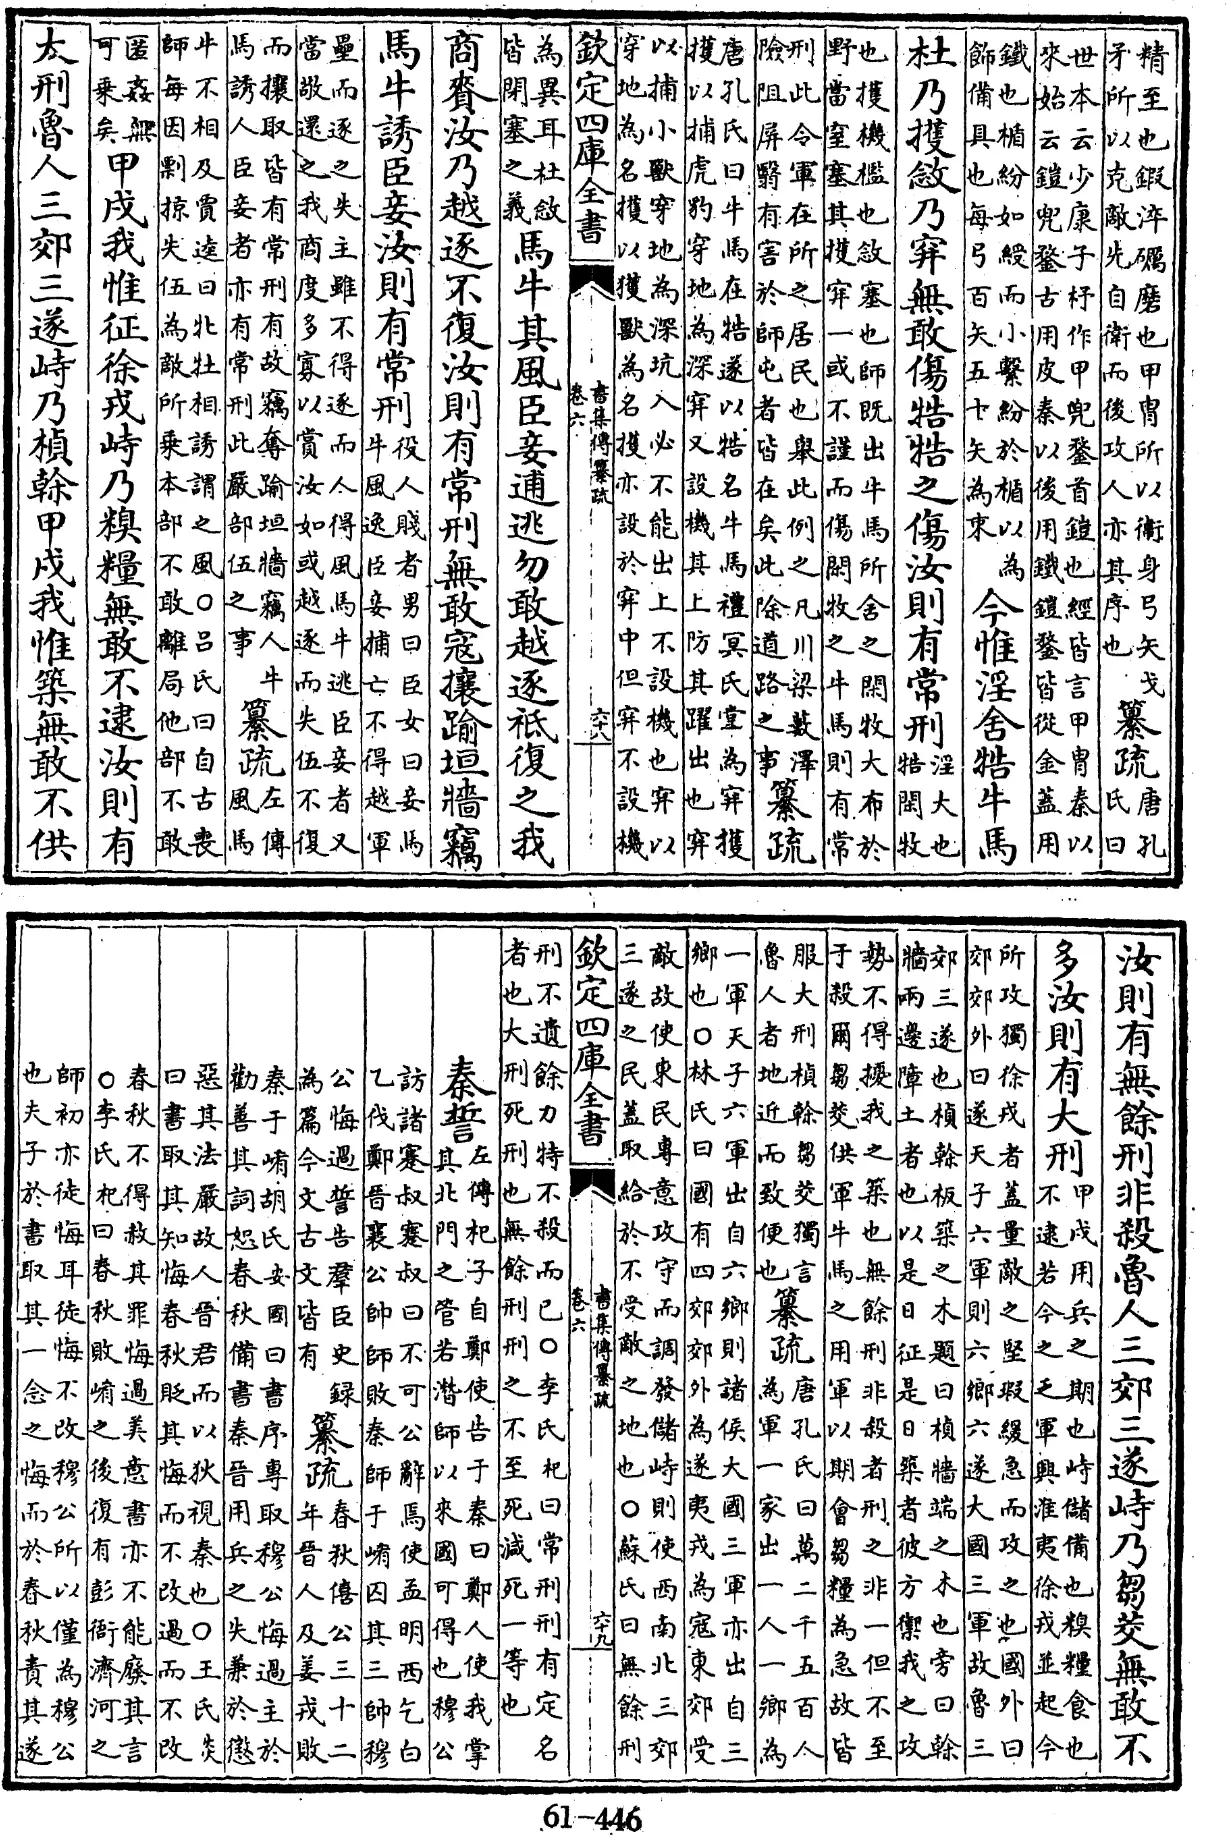 精至也鍛淬礪磨也甲胄所以衛身弓矢戈
矛所以克敵先自衛而後攻人亦其序也 纂疏 唐孔氏曰
世本云少康子杼作甲兜鍪首鎧也經皆言甲胄秦以
來始云鎧兜鍪古用皮秦以後用鐵鎧鍪皆從金蓋用
鐵也楯紛如綬而小繫紛於楯以為
飾備具也每弓百矢五十矢為束 今惟淫舍牿牛馬
杜乃擭敜乃穽無敢傷牿牿之傷汝則有常刑 淫大也牿閑牧
也擭機檻也敜塞也師既出牛馬所舍之閑牧大布於
野當窒塞其擭穽一或不謹而傷閑牧之牛馬則有常
刑此令軍在所之居民也舉此例之凡川梁藪澤
險阻屏翳有害於師屯者皆在矣此除道路之事 纂疏
唐孔氏曰牛馬在牿遂以牿名牛馬禮冥氏堂為穽擭
擭以捕虎豹穿地為深穽又設機其上防其躍出也穽
以捕小獸穿地為深坑入必不能出上不設機也穽以
穿地為名擭以獲獸為名擭亦設於穽中但穽不設機
欽定四庫全書 書集傳纂疏 卷六 六十八
為異耳杜敜皆閉塞之義 馬牛其風臣妾逋逃勿敢越逐祗復之我
商賚汝乃越逐不復汝則有常刑無敢寇攘踰垣牆竊
馬牛誘臣妾汝則有常刑 役人賤者男曰臣女曰妾馬
牛風逸臣妾捕亡不得越軍
壘而逐之失主雖不得逐而人得風馬牛逃臣妾者又
當敬還之我商度多寡以賞汝如或越逐而失伍不復
而攘取皆有常刑有故竊奪踰垣牆竊人牛
馬誘人臣妾者亦有常刑此嚴部伍之事 纂疏 左傳風馬
牛不相及賈逵曰牝牡相誘謂之風○呂氏曰自古喪
師每因剽掠失伍為敵所乗本部不敢離局他部不敢
匿姦無可乗矣 甲戌我惟征徐戎峙乃糗糧無敢不逮汝則有
大刑魯人三郊三遂峙乃楨榦甲戌我惟築無敢不供
汝則有無餘刑非殺魯人三郊三遂峙乃芻茭無敢不
多汝則有大刑 甲戌用兵之期也峙儲備也糗糧食也
不逮若今之乏軍興淮夷徐戎並起今
所攻獨徐戎者蓋量敵之堅瑕緩急而攻之也國外曰
郊郊外曰遂天子六軍則六鄉六遂大國三軍故魯三
郊三遂也楨榦板築之木題曰楨牆端之木也旁曰榦
牆兩邊障土者也以是日征是日築者彼方禦我之攻
勢不得擾我之築也無餘刑非殺者刑之非一但不至
于殺爾芻茭供軍牛馬之用軍以期會芻糧為急故皆
服大刑楨榦芻茭獨言
魯人者地近而致便也 纂疏 唐孔氏曰萬二千五百人
為軍一家出一人一鄉為
一軍天子六軍出自六鄉則諸侯大國三軍亦出自三
鄉也○林氏曰國有四郊郊外為遂夷戎為寇東郊受
敵故使東民專意攻守而調發儲峙則使西南北三郊
三遂之民蓋取給於不受敵之地也○蘇氏曰無餘刑
欽定四庫全書 書集傳纂疏 卷六 六十九
刑不遺餘力特不殺而已○李氏杞曰常刑刑有定名
者也大刑死刑也無餘刑刑之不至死減死一等也
秦誓 左傳杞子自鄭使告于秦曰鄭人使我掌
其北門之管若潛師以來國可得也穆公
訪諸蹇叔蹇叔曰不可公辭焉使孟明西乞白
乙伐鄭晉襄公帥師敗秦師于崤囚其三帥穆
公悔過誓告羣臣史録
為篇今文古文皆有 纂疏 春秋僖公三十二
年晉人及姜戎敗
秦于崤胡氏安國曰書序專取穆公悔過主於
勸善其詞恕春秋備書秦晉用兵之失兼於懲
惡其法嚴故人晉君而以狄視秦也○王氏炎
曰書取其知悔春秋貶其悔而不改過而不改
春秋不得赦其罪悔過美意書亦不能廢其言
○李氏杞曰春秋敗崤之後復有彭衙濟河之
師初亦徒悔耳徒悔不改穆公所以僅為穆公
也夫子於書取其一念之悔而於春秋責其遂
61-446